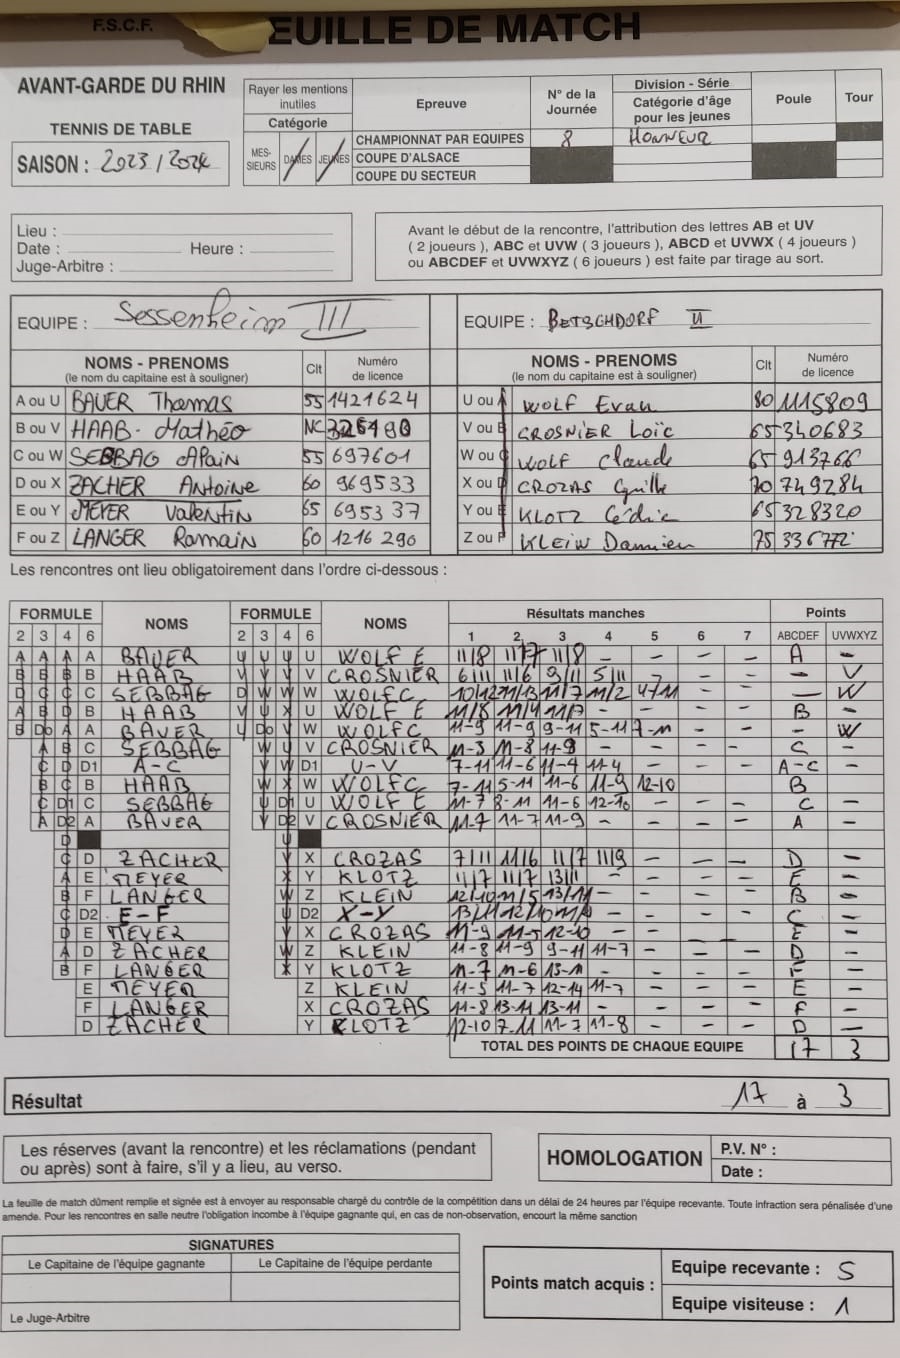 F.S.C.F.
EUILLE DE MATCH
AVANT-GARDE DU RHIN
TENNIS DE TABLE
SAISON : 2023/2024
Rayer les mentions inutiles
Catégorie
MES-SIEURS DAMES JEUNES
Epreuve
CHAMPIONNAT PAR EQUIPES
COUPE D'ALSACE
COUPE DU SECTEUR
N° de la Journée
8
Division - Série
Catégorie d'âge pour les jeunes
HONNEUR
Poule
Tour
Lieu :
Date : Heure :
Juge-Arbitre :
Avant le début de la rencontre, l'attribution des lettres AB et UV
( 2 joueurs ), ABC et UVW ( 3 joueurs ), ABCD et UVWX ( 4 joueurs )
ou ABCDEF et UVWXYZ ( 6 joueurs ) est faite par tirage au sort.
EQUIPE : Sessenheim III
EQUIPE : BETSCHDORF II
NOMS - PRENOMS Clt Numéro
(le nom du capitaine est à souligner) de licence
NOMS - PRENOMS Clt Numéro
(le nom du capitaine est à souligner) de licence
A ou U BAUER Thomas 55 1421624 U ou A WOLF Evan 80 1115809
B ou V HAAB Mathéo NC V ou B CROSNIER Loïc 65 340683
C ou W SEBBAG Alain 55 697601 W ou C WOLF Claude 65 913766
D ou X ZACHER Antoine 60 969533 X ou D CROZAS Cyrille 70 749284
E ou Y MEYER Valentin 65 695337 Y ou E KLOTZ Cédric 65 328320
F ou Z LANGER Romain 60 1216290 Z ou F KLEIN Damien 75 336772
Les rencontres ont lieu obligatoirement dans l'ordre ci-dessous :
FORMULE NOMS FORMULE NOMS Résultats manches Points
2 3 4 6 2 3 4 6 1 2 3 4 5 6 7 ABCDEF UVWXYZ
A A A A BAUER U U U U WOLF E 11/8 11/7 11/8 - - - - A -
B B B B HAAB V V V V CROSNIER 6/11 11/6 9/11 5/11 - - - - V
D C C C SEBBAG D W W W WOLF C 10/12 11/13 11/7 11/2 4/11 - - - W
A B D B HAAB V U X U WOLF E 11/8 11/4 11/7 - - - - B -
B Do A A BAUER U Do V W WOLF C 11-9 11-9 9-11 5-11 7-11 - - - W
A B C SEBBAG W U V CROSNIER 11-3 11-8 11-9 - - - - C -
C D D1 A-C V W D1 U-V 7-11 11-6 11-4 11-4 - - - A-C -
B C B HAAB W X W WOLF C 7-11 5-11 11-6 11-9 12-10 B -
C D1 C SEBBAG U D1 U WOLF E 11-7 8-11 11-6 12-10 - - - C -
A D2 A BAUER V D2 V CROSNIER 11-7 11-7 11-9 - - - - A -
D U
C D ZACHER V X CROZAS 7/11 11/6 11/7 11/9 - - - D -
A E MEYER X Y KLOTZ 11/7 11/7 13/11 - - - - E -
B F LANGER W Z KLEIN 12/10 11/5 13/11 - - - - B -
C D2 E-F U D2 X-Y 13/11 12/10 - - - - C -
D E MEYER V X CROZAS 11-9 11-5 12-10 - - - - E -
A D ZACHER W Z KLEIN 11-8 11-9 9-11 11-7 - - - D -
B F LANGER X Y KLOTZ 11-7 11-6 13-11 - - - - F -
E MEYER Z KLEIN 11-5 11-7 12-14 11-7 - - - E -
F LANGER X CROZAS 11-8 13-11 13-11 - - - - F -
D ZACHER Y KLOTZ 12-10 7-11 11-7 11-8 - - - D -
TOTAL DES POINTS DE CHAQUE EQUIPE 17 3
Résultat 17 à 3
Les réserves (avant la rencontre) et les réclamations (pendant
ou après) sont à faire, s'il y a lieu, au verso.
HOMOLOGATION
P.V. N° :
Date :
La feuille de match dûment remplie et signée est à envoyer au responsable chargé du contrôle de la compétition dans un délai de 24 heures par l'équipe recevante. Toute infraction sera pénalisée d'une
amende. Pour les rencontres en salle neutre l'obligation incombe à l'équipe gagnante qui, en cas de non-observation, encourt la même sanction
SIGNATURES
Le Capitaine de l'équipe gagnante Le Capitaine de l'équipe perdante
Le Juge-Arbitre
Points match acquis :
Equipe recevante : 5
Equipe visiteuse : 1